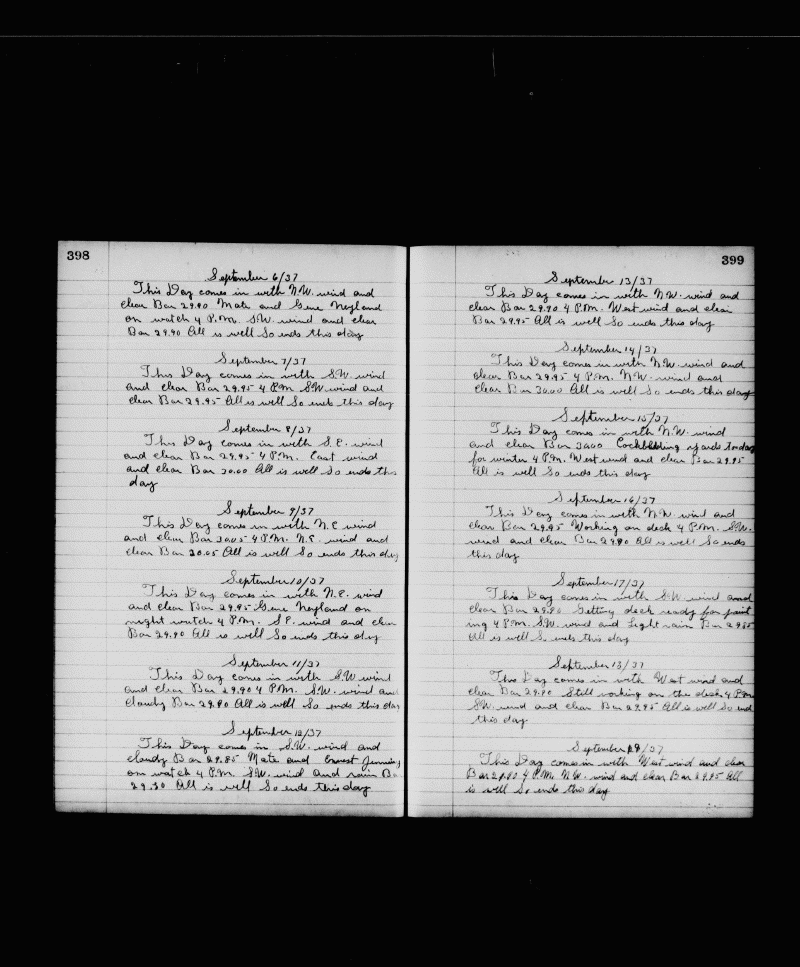 398
September 6/37
This Day comes in with N.W. wind and
clear Bar 29.90 Mate and Gene Neyland
on watch 4 P.M. S.W. wind and clear
Bar 29.90 All is well So ends this day
September 7/37
This Day comes in with S.W. wind
and clear Bar 29.95 4 P.M. S.W wind and
clear Bar 29.95 All is well So ends this day
September 8/37
This Day comes in with S.E. wind
and clear Bar 29.95 4 P.M. East wind
and clear Bar 30.00 All is well So ends this
day
September 9/37
This Day comes in with N.E wind
and clear Bar 30.05 4 P.M. N.E. wind and
clear Bar 30.05 All is well So ends this day
September 10/37
This Day comes in with N.E. wind
and clear Bar 29.95 Gene Neyland on
night watch 4 P.M. S.E. wind and clear
Bar 29.90 All is well So ends this day
September 11/37
This Day comes in with S.W wind
and clear Bar 29.90 4 P.M. S.W. wind and
cloudy Bar 29.80 All is well So ends this day
September 12/37
This Day comes in S.W. wind and
cloudy Bar 29.85 Mate and Ernest
on watch 4 P.M. S.W. wind and rain Ba
29.80 All is well So ends this day
399
September 13/37
This Day comes in with N.W. wind and
clear Bar 29.90 4 P.M. West wind and clear
Bar 29.95 All is well So ends this day
September 14/37
This Day comes in with N.W. wind and
clear Bar 29.95 4 P.M. N.W. wind and
clear Bar 30.00 All is well So ends this day
September 15/37
This Day comes in with N.W. wind
and clear Bar 30.00 Cockbilling yards today
for winter 4 P.M. West wind and clear Bar 29.95
All is well So ends this day
September 16/37
This Day comes in with N.W. wind and
clear Bar 29.95 Working on deck 4 P.M. S.W.
wind and clear Bar 29.90 All is well So ends
this day
September 17/37
This Day comes in with S.W wind and
clear Bar 29.90 Getting deck ready for paint
ing 4 P.M. S.W. wind and Light rain Bar 29.85
All is well So ends this day
September 13/37
This Day comes in with West wind and
clear Bar 29.90 Still working on the deck 4 P.M
S.W. wind and clear Bar 29.95 All is well So end
this day
September 19/37
This Day comes in with West wind and clear
Bar 29.90 4 P.M. N.W. wind and clear Bar 29.95 All
is well So ends this day